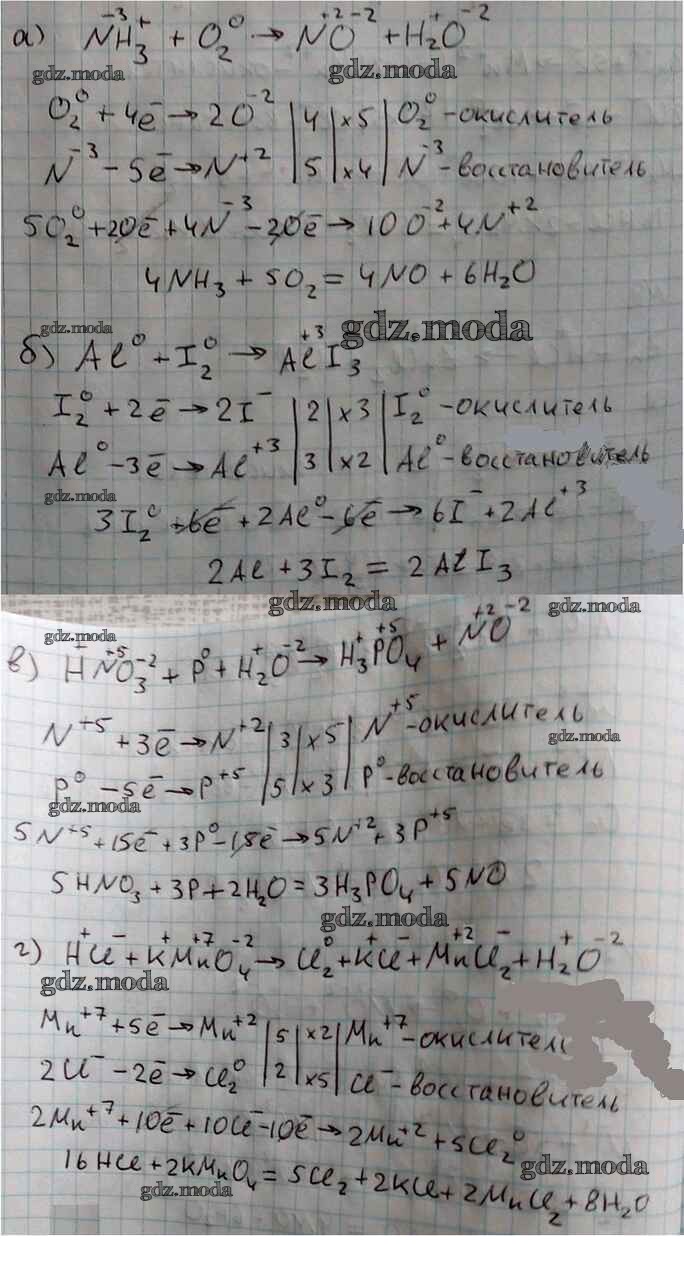 а) N⁻³H₃⁺ + O₂⁰ → N⁺²O⁻² + H₂⁺O⁻²
gdz.moda
gdz.moda
O₂⁰ + 4ē → 2O⁻² | 4 | ×5 | O₂⁰ - окислитель
N⁻³ - 5ē → N⁺² | 5 | ×4 | N⁻³ - восстановитель
5O₂⁰ + 20ē + 4N⁻³ - 20ē → 10O⁻² + 4N⁺²
4NH₃ + 5O₂ = 4NO + 6H₂O
gdz.moda
gdz.moda
б) Al⁰ + I₂⁰ → Al⁺³I₃⁻
I₂⁰ + 2ē → 2I⁻ | 2 | ×3 | I₂⁰ - окислитель
Al⁰ - 3ē → Al⁺³ | 3 | ×2 | Al⁰ - восстановитель
gdz.moda
3I₂⁰ + 6ē + 2Al⁰ - 6ē → 6I⁻ + 2Al⁺³
2Al + 3I₂ = 2AlI₃
gdz.moda
gdz.moda
gdz.moda
в) H⁺N⁺⁵O₃⁻² + P⁰ + H₂⁺O⁻² → H₃⁺P⁺⁵O₄ + N⁺²O⁻²
N⁺⁵ + 3ē → N⁺² | 3 | ×5 | N⁺⁵ - окислитель
gdz.moda
P⁰ - 5ē → P⁺⁵ | 5 | ×3 | P⁰ - восстановитель
gdz.moda
5N⁺⁵ + 15ē + 3P⁰ - 15ē → 5N⁺² + 3P⁺⁵
5HNO₃ + 3P + 2H₂O = 3H₃PO₄ + 5NO
gdz.moda
г) H⁺Cl⁻ + K⁺Mn⁺⁷O₄⁻² → Cl₂⁰ + K⁺Cl⁻ + Mn⁺²Cl₂⁻ + H₂⁺O⁻²
gdz.moda
Mn⁺⁷ + 5ē → Mn⁺² | 5 | ×2 | Mn⁺⁷ - окислитель
2Cl⁻ - 2ē → Cl₂⁰ | 2 | ×5 | Cl⁻ - восстановитель
gdz.moda
2Mn⁺⁷ + 10ē + 10Cl⁻ - 10ē → 2Mn⁺² + 5Cl₂⁰
gdz.moda
16HCl + 2KMnO₄ = 5Cl₂ + 2KCl + 2MnCl₂ + 8H₂O
gdz.moda